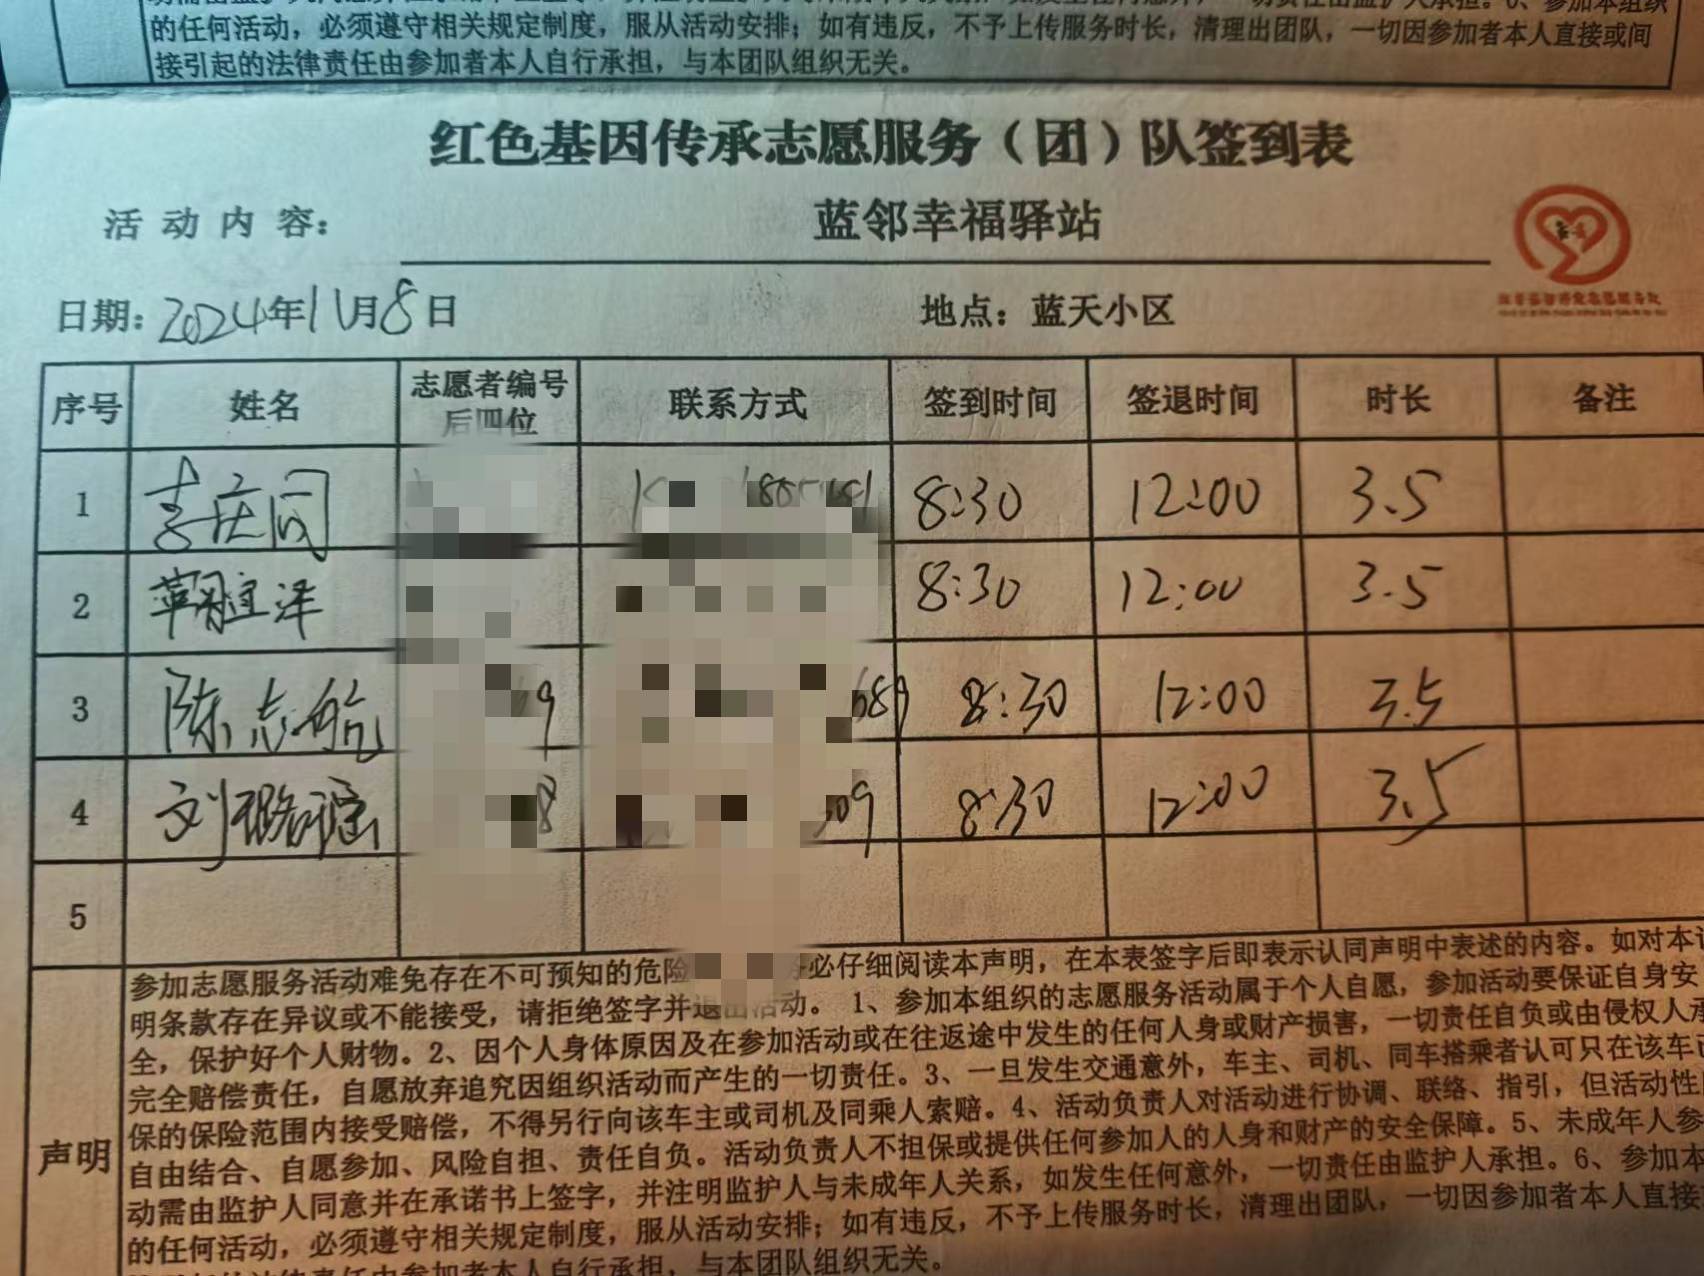 的任何活动，必须遵守相关规定制度，服从活动安排；如有违反，不予上传服务时长，清理出团队，一切因参加者本人直接或间
接引起的法律责任由参加者本人自行承担，与本团队组织无关。
红色基因传承志愿服务（团）队签到表
活动内容： 蓝邻幸福驿站
日期：2024年11月8日 地点：蓝天小区
序号 姓名 志愿者编号后四位 联系方式 签到时间 签退时间 时长 备注
1 李庆同 8:30 12:00 3.5
2 8:30 12:00 3.5
3 陈志航 9 689 8:30 12:00 3.5
4 刘 8 09 8:30 12:00 3.5
5
声明
参加志愿服务活动难免存在不可预知的危险 必仔细阅读本声明，在本表签字后即表示认同声明中表述的内容。如对本
明条款存在异议或不能接受，请拒绝签字并退出活动。1、参加本组织的志愿服务活动属于个人自愿，参加活动要保证自身安
全，保护好个人财物。2、因个人身体原因及在参加活动或在往返途中发生的任何人身或财产损害，一切责任自负或由侵权人承
完全赔偿责任，自愿放弃追究因组织活动而产生的一切责任。3、一旦发生交通意外，车主、司机、同车搭乘者认可只在该车已
保的保险范围内接受赔偿，不得另行向该车主或司机及同乘人索赔。4、活动负责人对活动进行协调、联络、指引，但活动性
自由结合、自愿参加、风险自担、责任自负。活动负责人不担保或提供任何参加人的人身和财产的安全保障。5、未成年人参
动需由监护人同意并在承诺书上签字，并注明监护人与未成年人关系，如发生任何意外，一切责任由监护人承担。6、参加本
的任何活动，必须遵守相关规定制度，服从活动安排；如有违反，不予上传服务时长，清理出团队，一切因参加者本人直接
责任由参加者本人自行承担，与本团队组织无关。